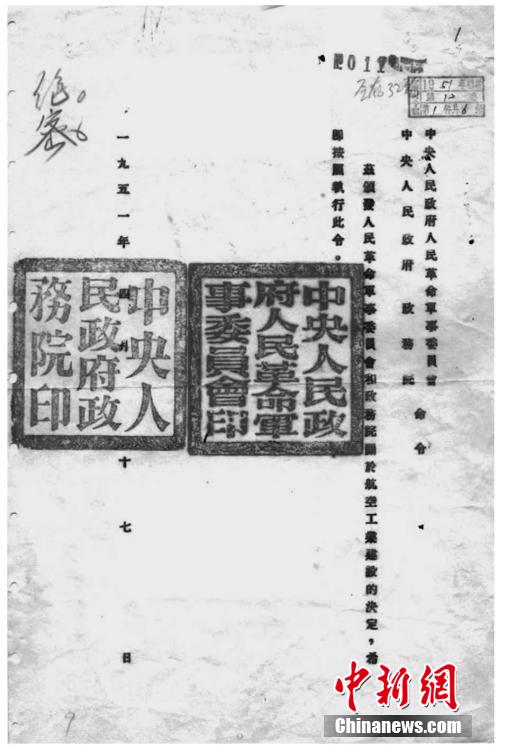 1
011
1951
第1
共6
绝密
中央人民政府人民革命軍事委員會
中央人民政府政務院
命令
茲頒發人民革命軍事委員會和政務院關於航空工業建設的決定，希
即按照執行此令。
中央人民政
府人民革命軍
事委員會印
中央人
民政府政
務院印
一九五一年四月十七日
9
中新網
Chinanews.com